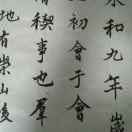 永和九年歲
初會于會
脩稧事也羣
地有崇山峻